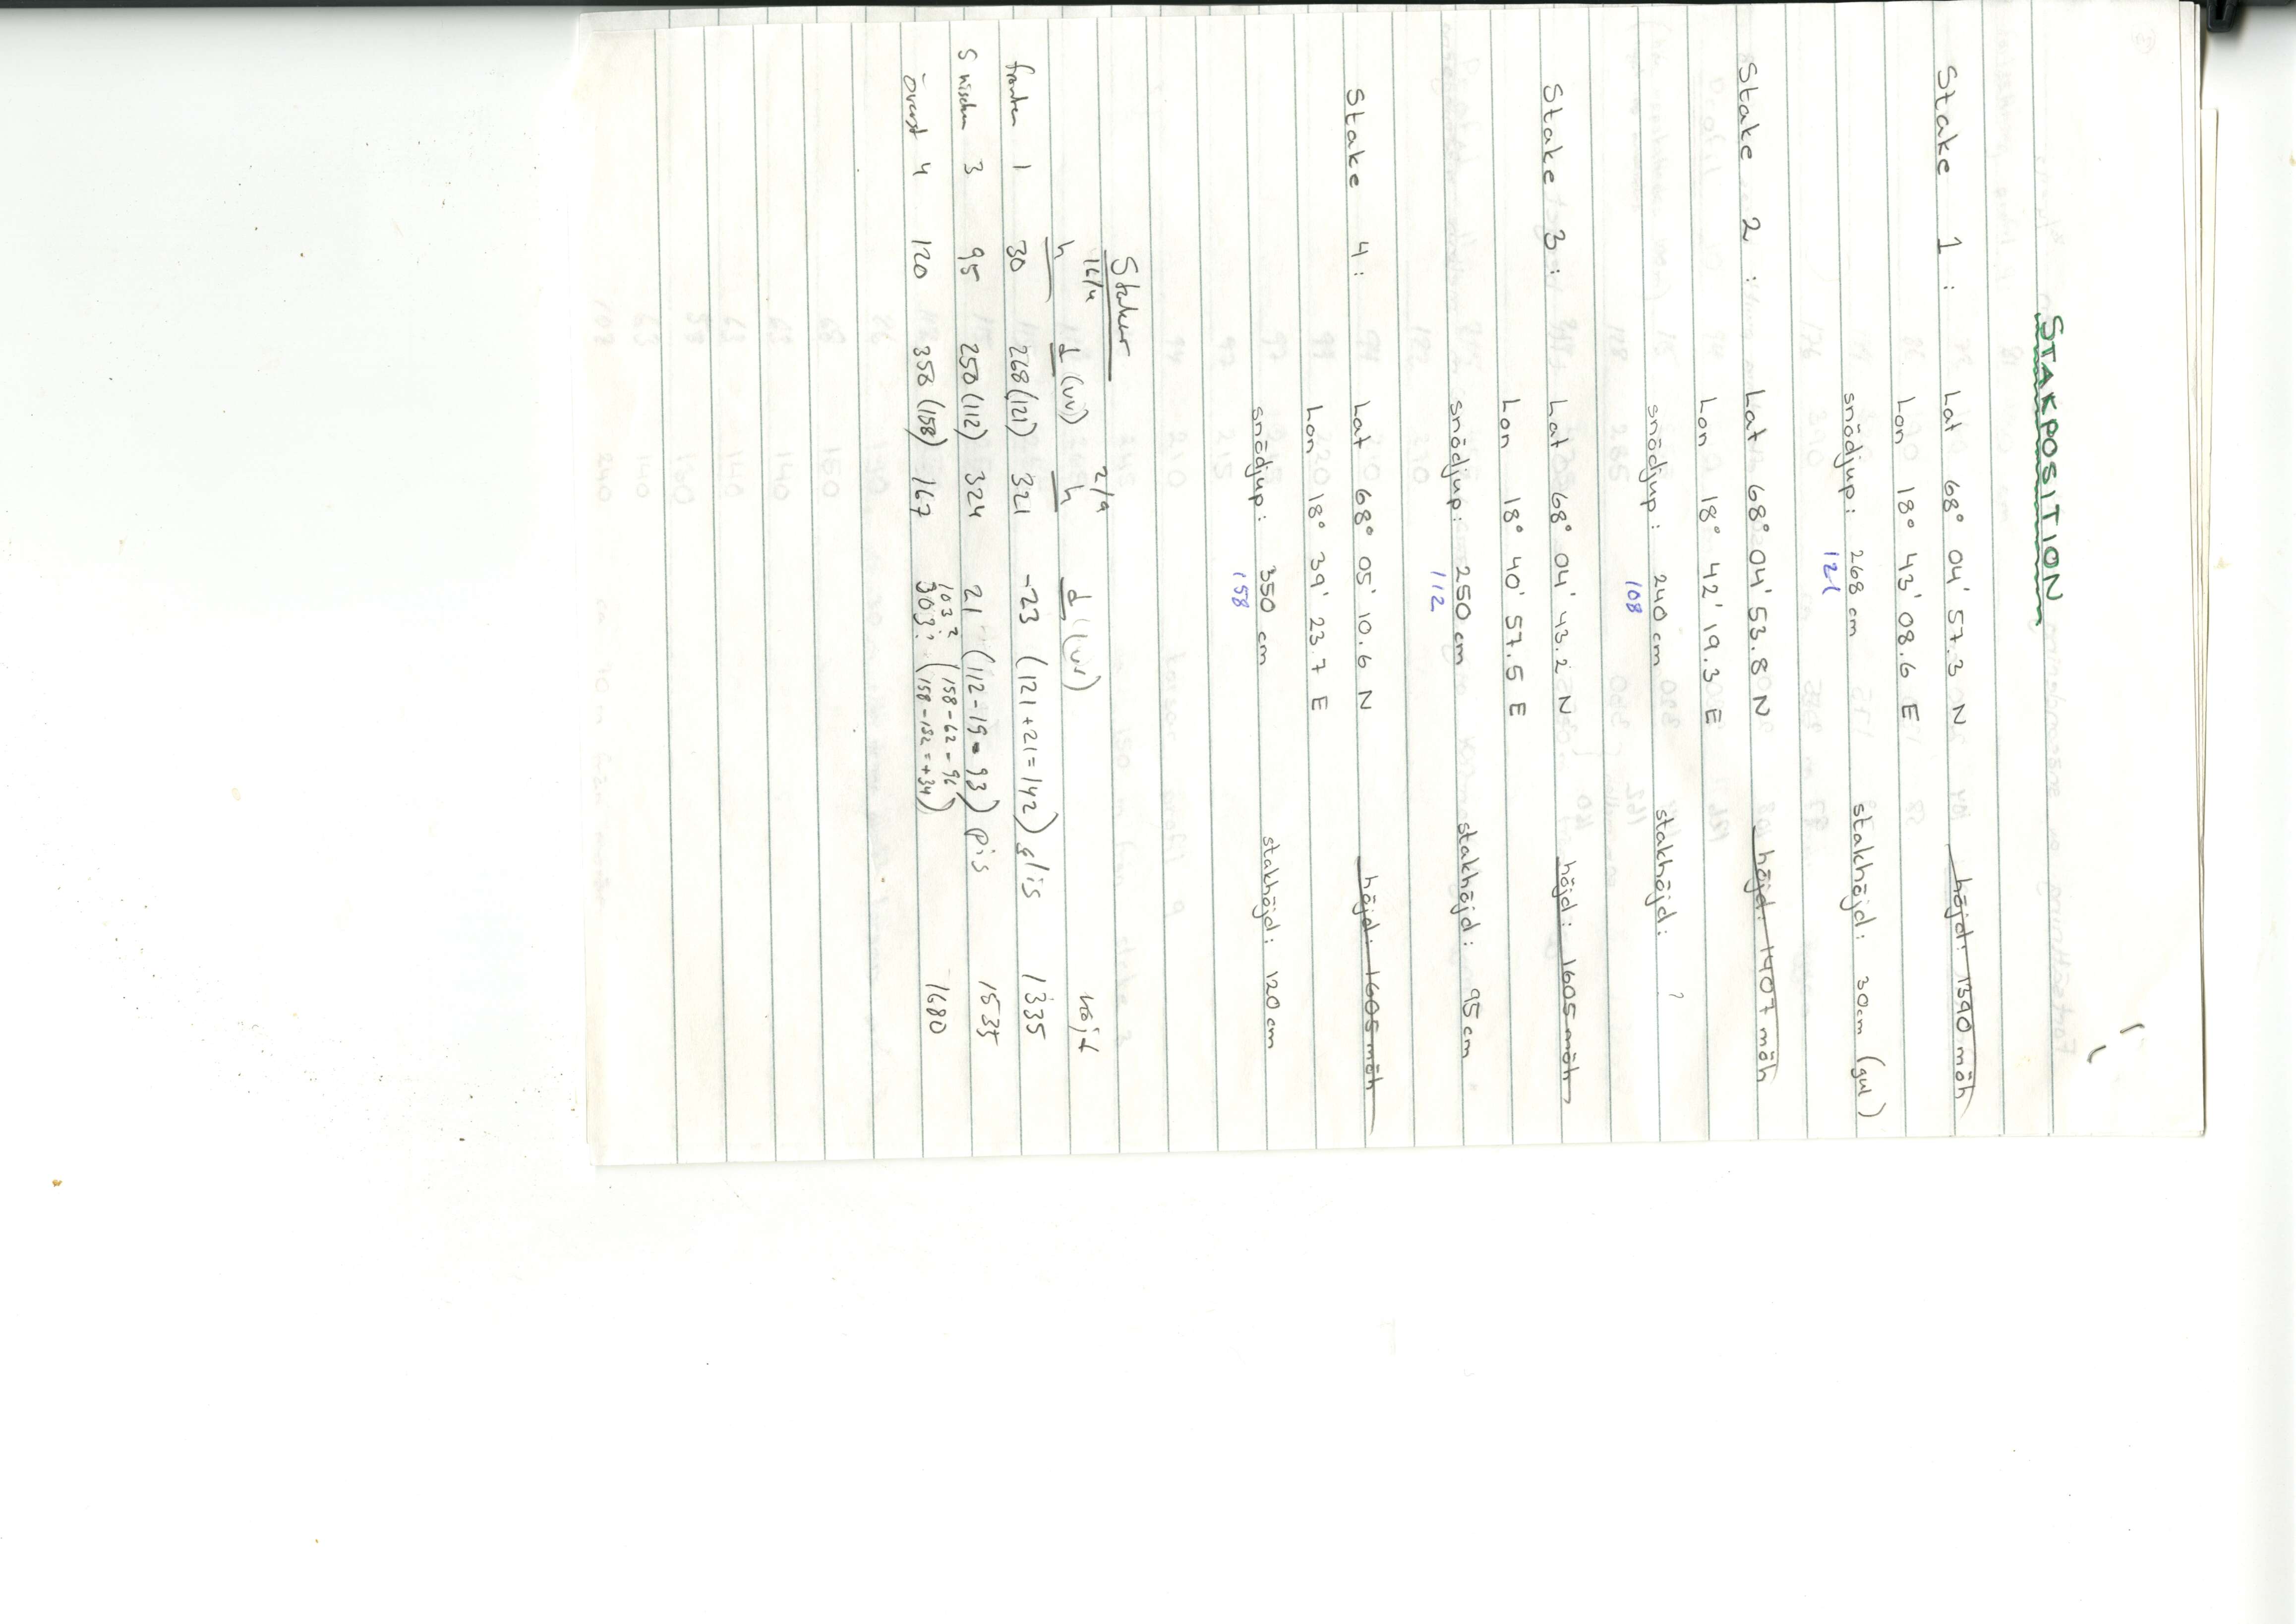 STAKPOSITION
Stake 1 : Lat 68° 04' 57.3 N höjd: 1390 möh
Lon 18° 43' 08.6 E
snödjup: 268 cm stakhöjd: 30cm (gul)
121
Stake 2 : Lat 68° 04' 53.8 N höjd: 1407 möh
Lon 18° 42' 19.3 E
snödjup: 240 cm stakhöjd: ?
108
Stake 3 : Lat 68° 04' 43.2 N höjd: 1605 möh
Lon 18° 40' 57.5 E
snödjup: 250 cm stakhöjd: 95 cm
112
Stake 4 : Lat 68° 05' 10.6 N höjd: 1605 möh
Lon 18° 39' 23.7 E
snödjup: 350 cm stakhöjd: 120 cm
158
Stakar
16/4 2/9
h d (vv) h d (vv) höjd
fronten 1 30 268 (121) 321 -23 (121+21=142) glis 1335
S nischen 3 95 250 (112) 324 21 (112-19=93) pis 1535
103? (158-62-96
överst 4 120 358 (158) 167 303? (158-192=+34) 1680